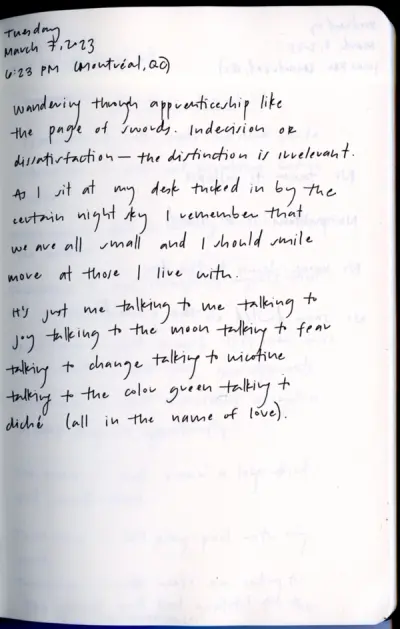 Tuesday
March 7, 2023
6:23 PM (Montréal, QC)
wandering through apprenticeship like
the page of swords. Indecision or
dissatisfaction — the distinction is irrelevant.
As I sit at my desk tucked in by the
curtain night sky I remember that
we are all small and I should smile
more at those I live with.
It's just me talking to me talking to
joy talking to the moon talking to fear
talking to change talking to nicotine
talking to the color green talking to
cliché (all in the name of love).